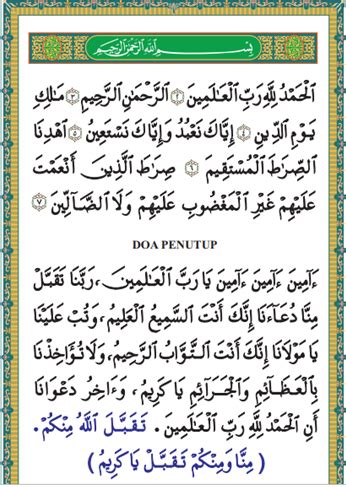 بِسْمِ اللهِ الرَّحْمٰنِ الرَّحِيْمِ
اَلْحَمْدُ لِلّٰهِ رَبِّ الْعَـٰلَمِينَ ۝٢ ٱلرَّحْمَـٰنِ ٱلرَّحِيمِ ۝٣ مَـٰلِكِ
يَوْمِ ٱلدِّينِ ۝٤ إِيَّاكَ نَعْبُدُ وَإِيَّاكَ نَسْتَعِينُ ۝٥ ٱهْدِنَا
ٱلصِّرَٰطَ ٱلْمُسْتَقِيمَ ۝٦ صِرَٰطَ ٱلَّذِينَ أَنْعَمْتَ
عَلَيْهِمْ غَيْرِ ٱلْمَغْضُوبِ عَلَيْهِمْ وَلَا ٱلضَّآلِّينَ ۝٧
DOA PENUTUP
ءَامِينَ ءَامِينَ ءَامِينَ يَا رَبَّ الْعَـٰلَمِينَ، رَبَّنَا تَقَبَّلْ
مِنَّا دُعَآءَنَا إِنَّكَ أَنْتَ السَّمِيعُ الْعَلِيمُ، وَتُبْ عَلَيْنَا
يَا مَوْلَانَا إِنَّكَ أَنْتَ التَّوَّابُ الرَّحِيمُ، وَلَا تُؤَاخِذْنَا
بِالْعَظَآئِمِ وَالْجَرَآئِمِ يَا كَرِيمُ، وَءَاخِرُ دَعْوَانَا
أَنِ الْحَمْدُ لِلّٰهِ رَبِّ الْعَـٰلَمِينَ. تَقَبَّلَ اللّٰهُ مِنْكُمْ.
( مِنَّا وَمِنْكُمْ تَقَبَّلْ يَا كَرِيمُ )